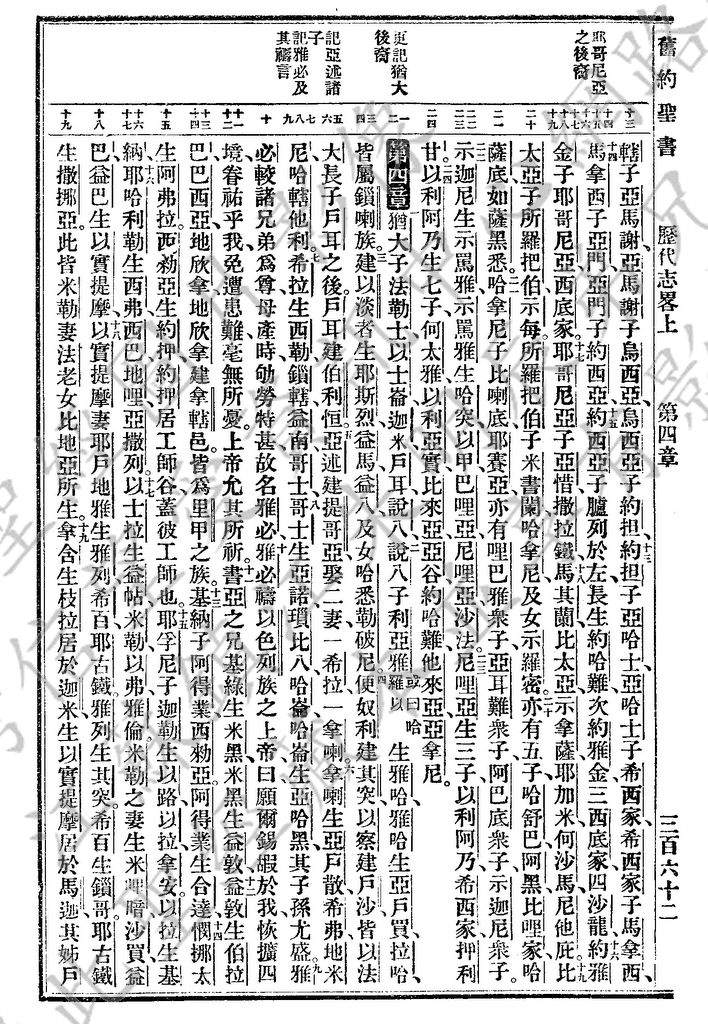 舊約聖書 歷代志畧上 第四章 三百六十二
耶哥尼亞之後裔
更記猶大後裔
記亞述諸子
記雅必及其禱言
轄子亞馬謝亞馬謝子烏西亞烏西亞子約担約担子亞哈士亞哈士子希西家希西家子馬拿西
馬拿西子亞門亞門子約西亞約西亞子臚列於左長生約哈難次約雅金三西底家四沙龍約雅
金子耶哥尼亞西底家耶哥尼亞子亞惜撒拉鐵馬其蘭比太亞示拿薩耶加米何沙馬尼他庇比
太亞子所羅把伯示每所羅把伯子米書闌哈拿尼及女示羅密亦有五子哈舒巴阿黑比哩家哈
薩底如薩黑悉哈拿尼子比喇底耶賽亞亦有哩巴雅衆子亞耳難衆子阿巴底衆子示迦尼衆子
示迦尼生示罵雅示罵雅生哈突以甲巴哩亞尼哩亞沙法尼哩亞生三子以利阿乃希西家押利
甘以利阿乃生七子何太雅以利亞實比來亞亞谷約哈難他來亞亞拿尼
第四章 猶大子法勒士以士崙迦米戶耳說八說八子利亞雅或曰哈羅以生雅哈雅哈生亞戶買拉哈
皆屬鎖喇族建以淡者生耶斯烈益馬益八及女哈悉勒破尼便奴利建其突以察建戶沙皆以法
大長子戶耳之後戶耳建伯利恒亞述建提哥亞娶二妻一希拉一拿喇拿喇生亞戶散希弗地米
尼哈轄他利希拉生西勒鎖轄益南哥士哥士生亞諾瑣比八哈崙哈崙生亞哈黑其子孫尤盛雅
必較諸兄弟爲尊母產時劬勞特甚故名雅必雅必禱以色列族之上帝曰願爾錫嘏於我恢擴四
境眷祐乎我免遭患難毫無所憂上帝允其所祈書亞之兄基綠生米黑米黑生益敦益敦生伯拉
巴巴西亞地欣拿地欣拿建拿轄邑皆爲里甲之族基納子阿得業西勑亞阿得業生合達憫挪太
生阿弗拉西勑亞生約押約押居工師谷蓋彼工師也耶孚尼子迦勒生以路以拉拿安以拉生基
納耶哈利勒生西弗西巴地哩亞撒列以士拉生益帖米勒以弗雅倫米勒之妻生米哩暗沙買益
巴益巴生以實提摩以實提摩妻耶戶地雅生雅列希百耶古鐵雅列生其突希百生鎖哥耶古鐵
生撒挪亞此皆米勒妻法老女比地亞所生拿含生枝拉居於迦米生以實提摩居於馬迦其姊戶